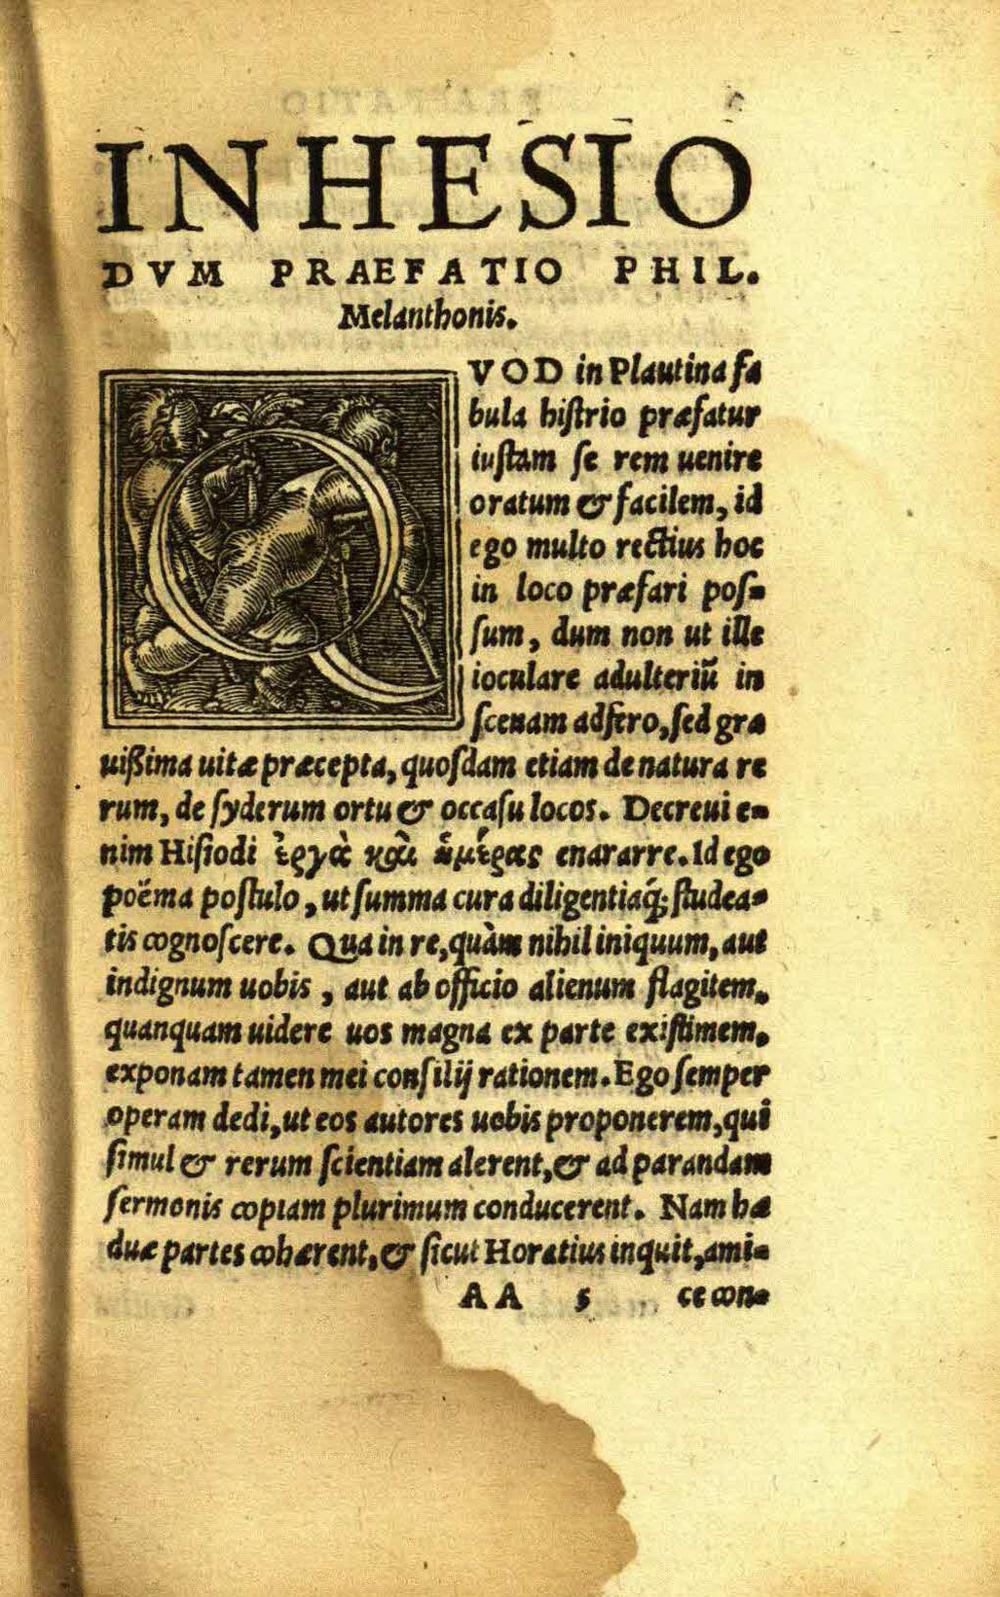 IN HESIO
DVM PRAEFATIO PHIL.
Melanthonis.
QVOD in Plautina fa
bula histrio præfatur
iustam se rem uenire
oratum & facilem, id
ego multo rectius hoc
in loco præfari pos-
sum, dum non ut ille
ioculare adulteriũ in
scenam adfero, sed gra
uißima uitæ præcepta, quosdam etiam de natura re
rum, de syderum ortu & occasu locos. Decreui e-
nim Hesiodi ἔργα καὶ ἡμέρας enararre. Id ego
poëma postulo, ut summa cura diligentiaq́; studea-
tis cognoscere. Qua in re, quàm nihil iniquum, aut
indignum uobis, aut ab officio alienum flagitem,
quanquam uidere uos magna ex parte existimem,
exponam tamen mei consilij rationem. Ego semper
operam dedi, ut eos autores uobis proponerem, qui
simul & rerum scientiam alerent, & ad parandam
sermonis copiam plurimum conducerent. Nam hæ
duæ partes cohærent, & sicut Horatius inquit, ami-
AA 5 ce con-